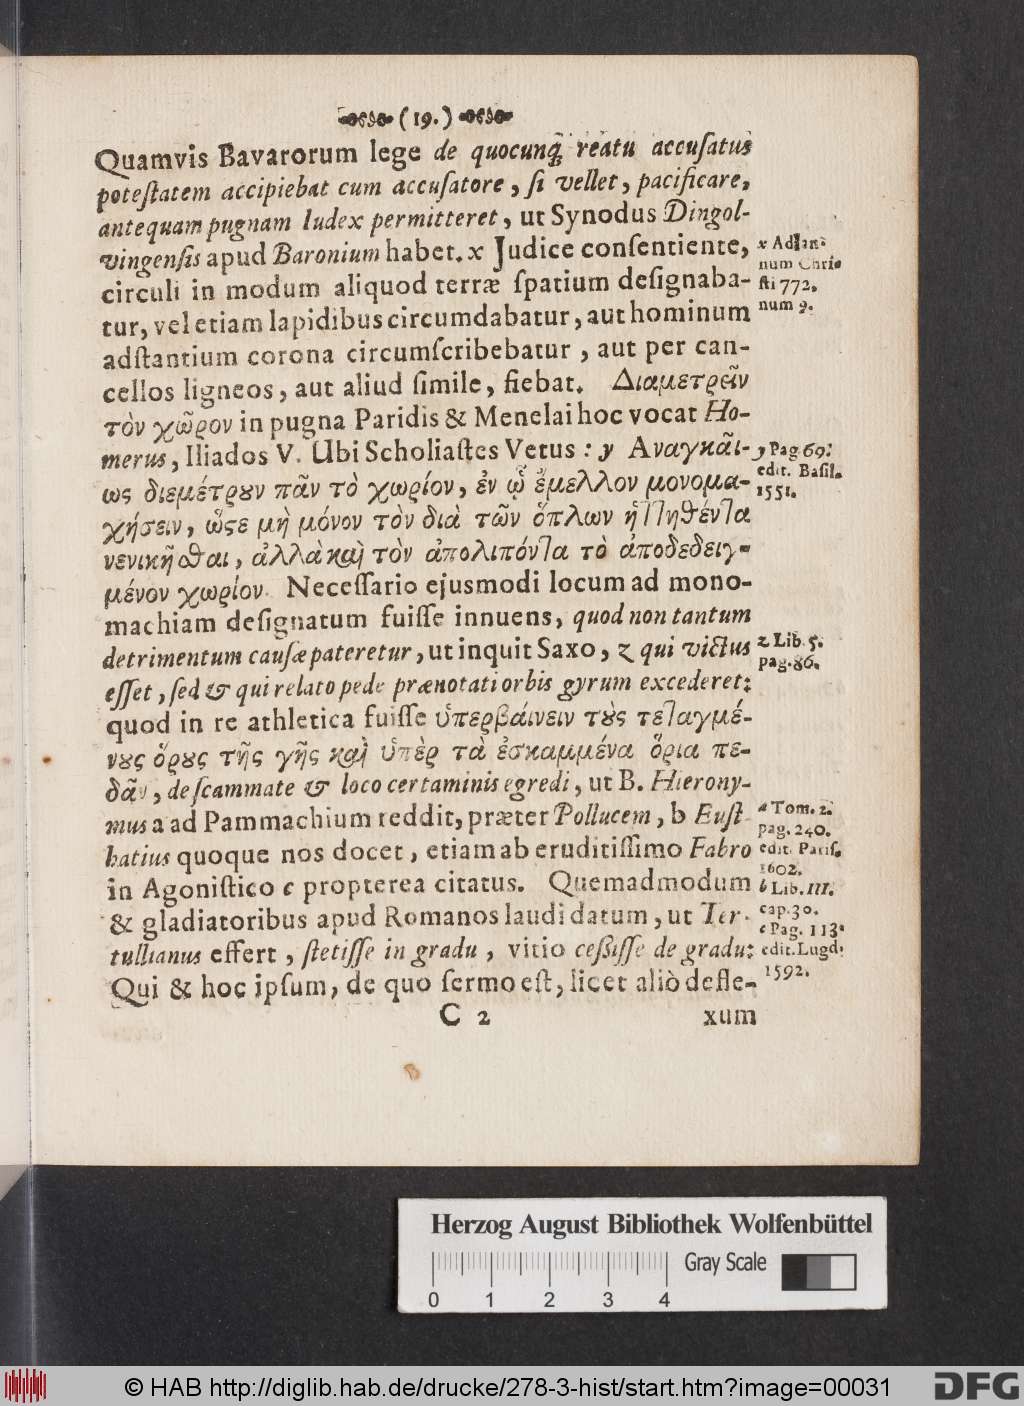 (19.)
Quamvis Bavarorum lege de quocunq́; reatu accuſatus
poteſtatem accipiebat cum accuſatore, ſi vellet, pacificare,
antequam pugnam Iudex permitteret, ut Synodus Dingol-
vingenſis apud Baronium habet. x Judice conſentiente,
circuli in modum aliquod terræ ſpatium deſignaba-
tur, vel etiam lapidibus circumdabatur, aut hominum
adſtantium corona circumſcribebatur, aut per can-
cellos ligneos, aut aliud ſimile, fiebat. Διαμετρεῖν
τὸν χῶρον in pugna Paridis & Menelai hoc vocat Ho-
merus, Iliados V. Ubi Scholiaſtes Vetus: y Αναγκᾶι-
ως διεμέτρȣν πᾶν τὸ χωρίον, ἐν ᾧ ἔμελλον μονομα-
χήσειν, ὥςε μὴ μόνον τὸν διὰ τῶν ὅπλων ἡττηθέντα
νενικῆσθαι, ἀλλὰ καὶ τὸν ἀπολιπόντα τὸ ἀποδεδειγ-
μένον χωρίον. Neceſſario ejusmodi locum ad mono-
machiam deſignatum fuiſſe innuens, quod non tantum
detrimentum cauſæ pateretur, ut inquit Saxo, z qui victus
eſſet, ſed & qui relato pede prænotati orbis gyrum excederet:
quod in re athletica fuiſſe ὑπερβάινειν τȣ̀ς τεταγμέ-
νȣς ὅρȣς τῆς γῆς καὶ ὑπὲρ τὰ ἐσκαμμένα ὅρια πε-
δᾶν, de ſcammate & loco certaminis egredi, ut B. Hierony-
mus a ad Pammachium reddit, præter Pollucem, b Euſt-
hatius quoque nos docet, etiam ab eruditiſſimo Fabro
in Agoniſtico c propterea citatus. Quemadmodum
& gladiatoribus apud Romanos laudi datum, ut Ter-
tullianus effert, ſtetiſſe in gradu, vitio ceßiſſe de gradu:
Qui & hoc ipſum, de quo ſermo eſt, licet aliò defle-
C 2 xum
x Ad an-
num Chri-
ſti 772.
num 9.
y Pag 69.
edit. Baſil.
1551.
z Lib. 5.
pag. 86.
a Tom. 2.
pag. 240.
edit. Pariſ.
1602.
b Lib. III.
cap. 30.
c Pag. 113.
edit. Lugd.
1592.
Herzog August Bibliothek Wolfenbüttel
Gray Scale
0 1 2 3 4
© HAB http://diglib.hab.de/drucke/278-3-hist/start.htm?image=00031
DFG